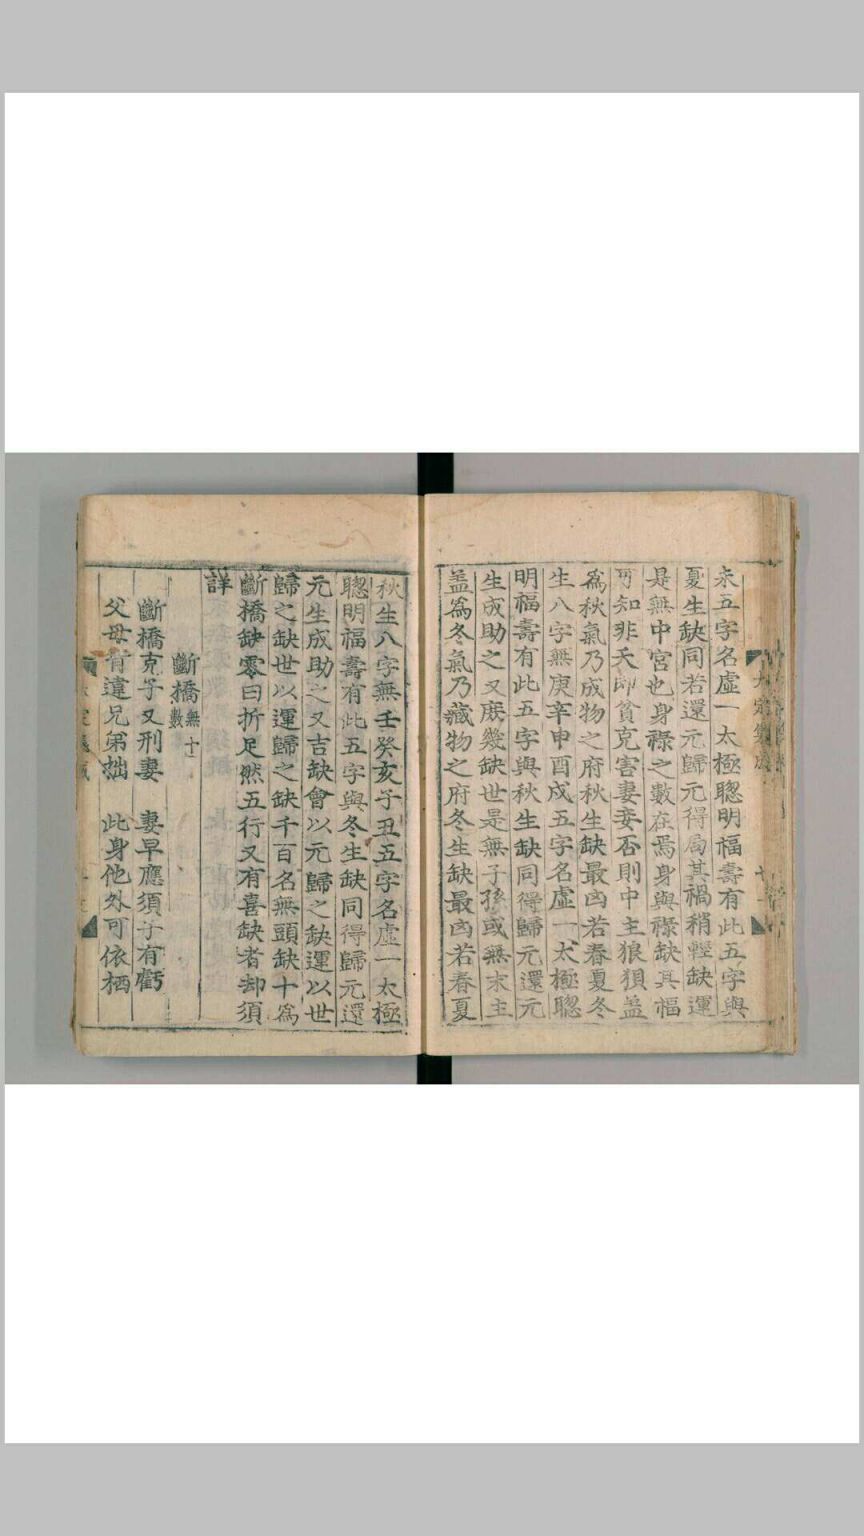 未五字名虛一太極聦明福壽有此五字與
夏生缺同若還元歸元得局其禍稍輕缺運
是無中宮也身祿之數在焉身與祿缺其福
可知非夭即貧克害妻妾否則中主狼狽盖
爲秋氣乃成物之府秋生缺最凶若春夏冬
生八字無庚辛申酉戍五字名虛一太極聦
明福壽有此五字與秋生缺同得歸元還元
生成助之又庻幾缺世是無子孫或無末主
盖爲冬氣乃藏物之府冬生缺最凶若春夏
秋生八字無壬癸亥子丑五字名虛一太極
聦明福壽有此五字與冬生缺同得歸元還
元生成助之又吉缺會以元歸之缺運以世
歸之缺世以運歸之缺千百名無頭缺十爲
斷橋缺零曰折足然五行又有喜缺者却須
詳
斷橋無十數
斷橋克子又刑妻 妻早應須子有虧
父母背違兄弟拙 此身他外可依栖